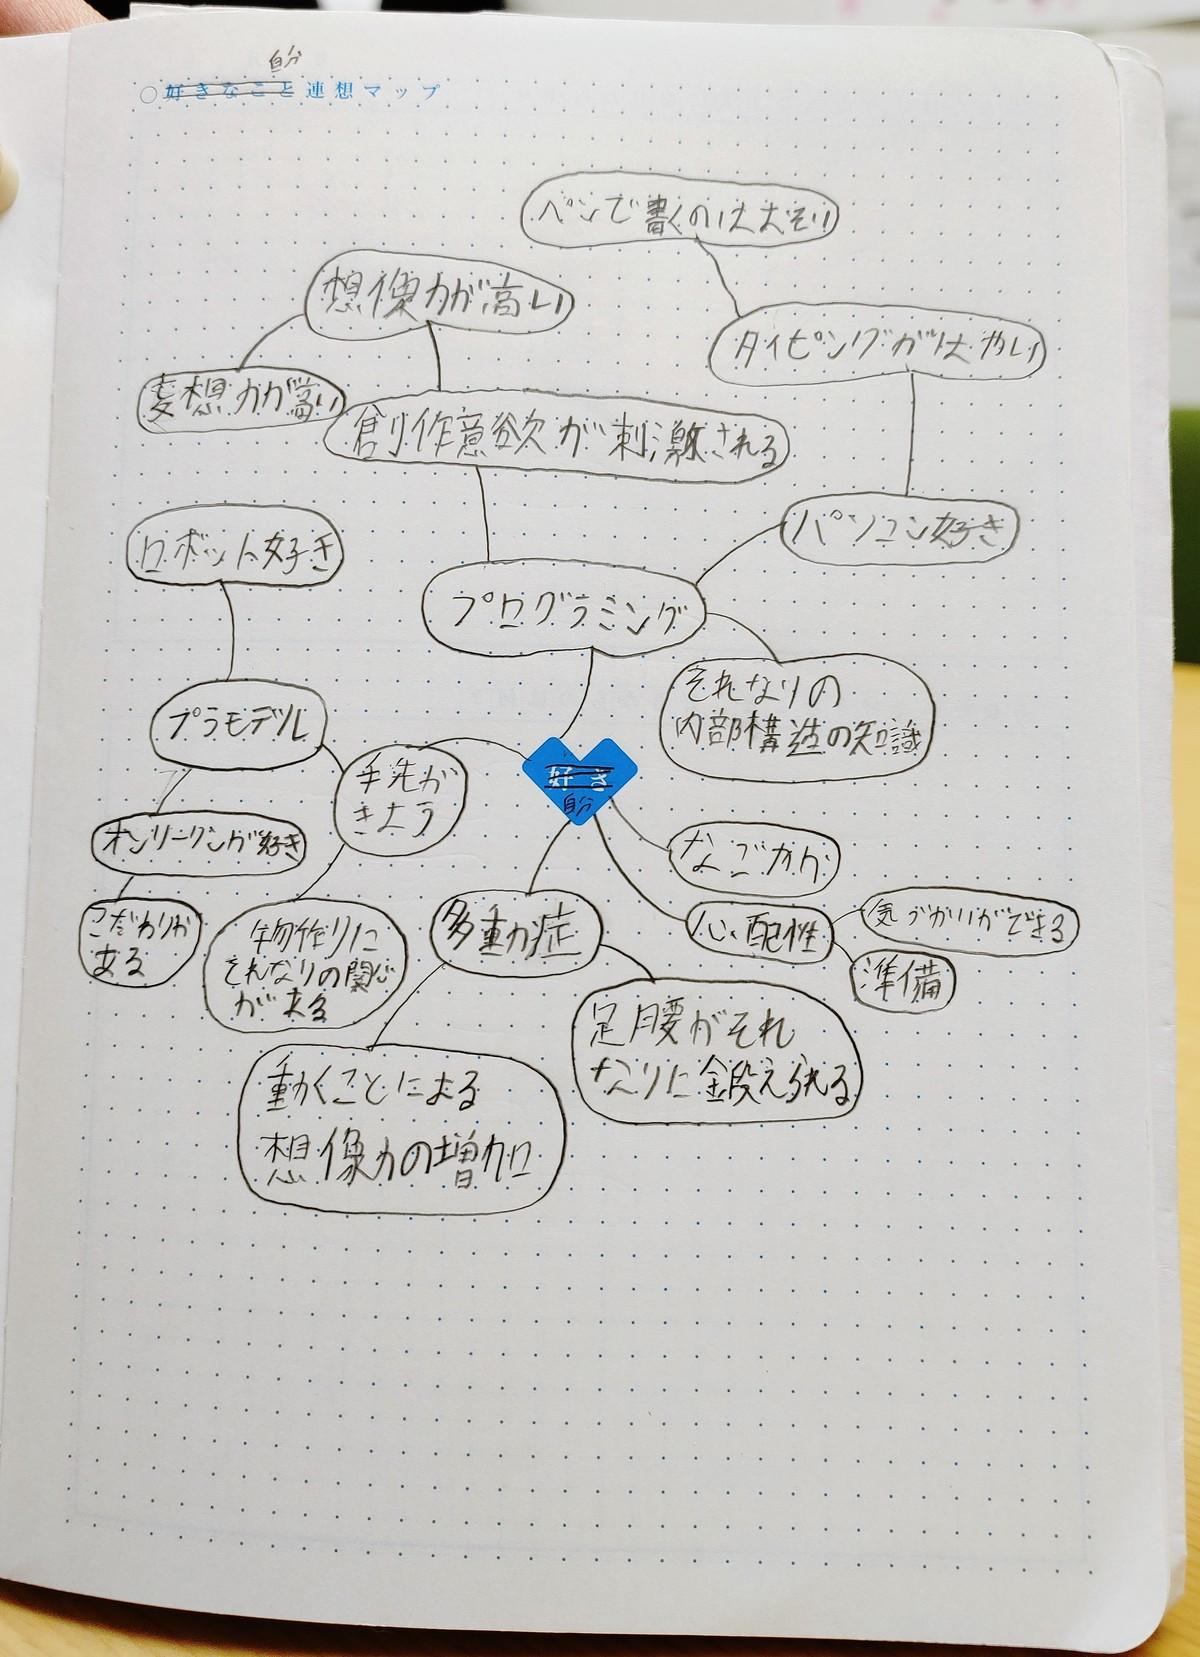 自分
○好きなこと連想マップ
ペンで書くのはおそい
想像力が高い
タイピングがはやい
妄想力が高い
創作意欲が刺激される
パソコン好き
ロボット好き
プログラミング
それなりの
内部構造の知識
プラモデル
手先が
きよう
好き
自分
オンリーワンが好き
なごやか
こだわりが
ある
物作りに
それなりの関心
が来る
多動症
心配性
気づかいができる
準備
足腰がそれ
なりに鍛えられる
動くことによる
想像力の増加